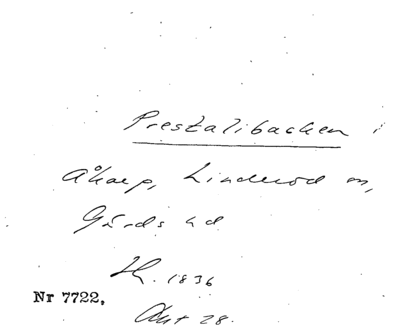 Prestalibacken i
Åkarp, Linderöd sn,
Gärds hd
Sk. 1836
Nr 7722,
Akt 28.